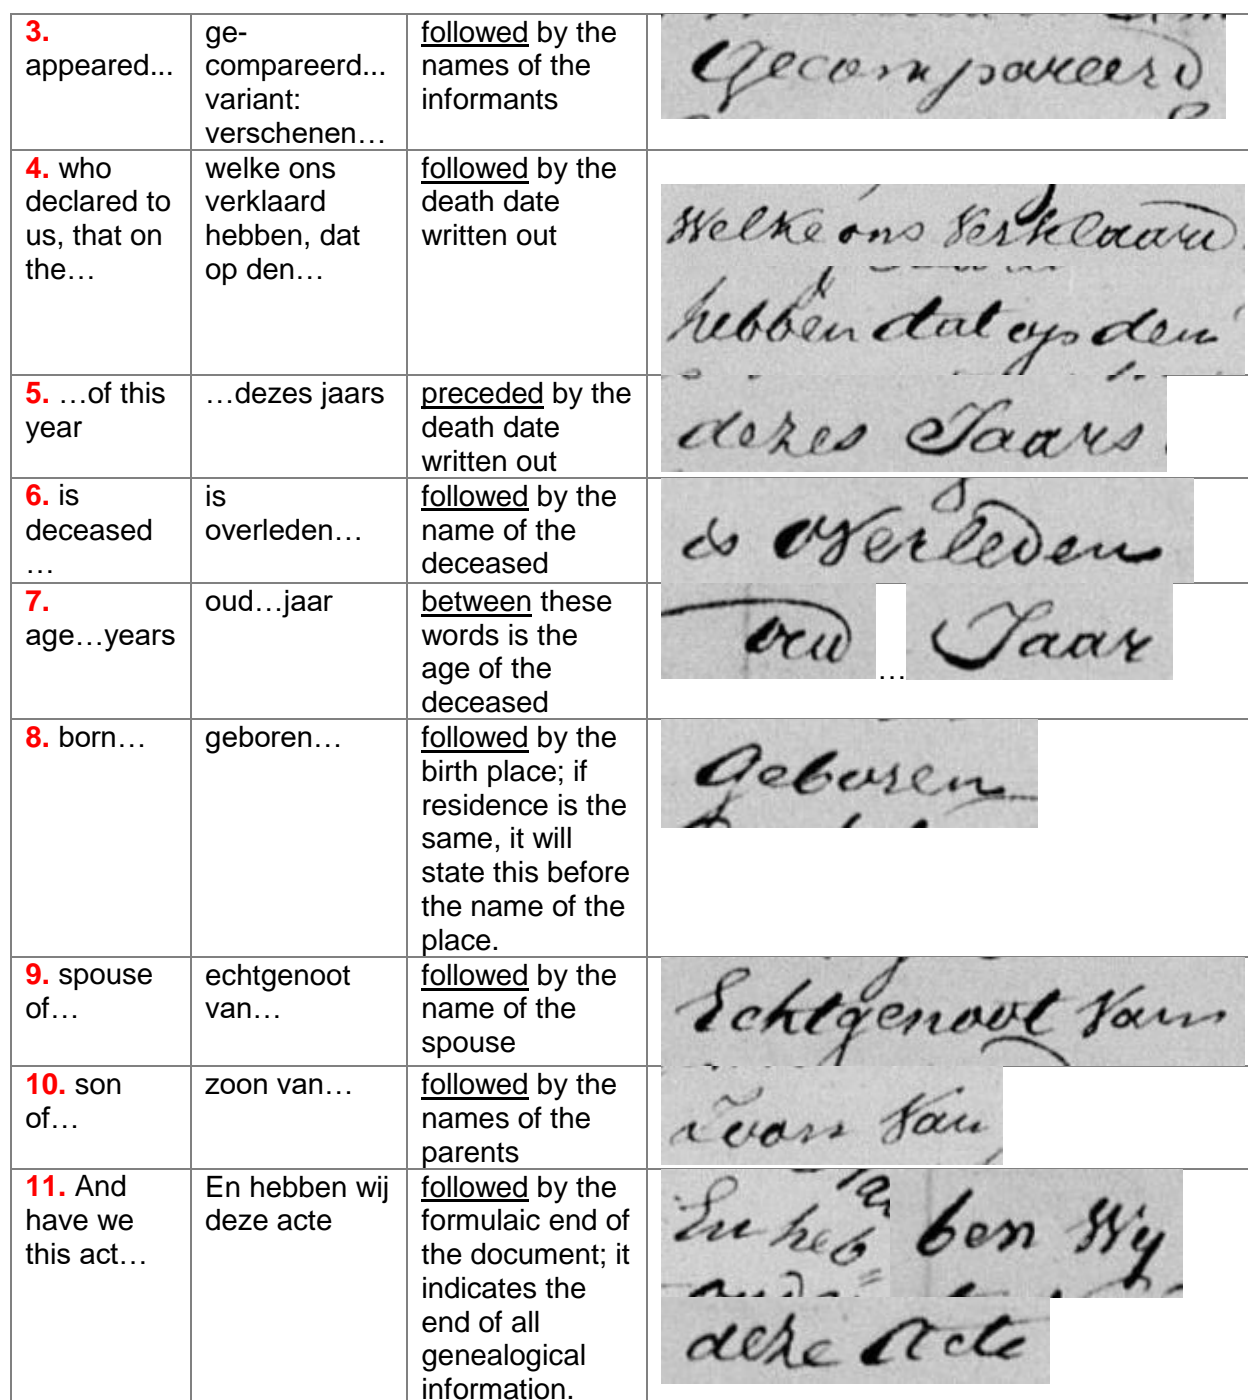 3.
appeared...
ge-
compareerd...
variant:
verschenen…
followed by the
names of the
informants
Gecompareerd
4. who
declared to
us, that on
the…
welke ons
verklaard
hebben, dat
op den…
followed by the
death date
written out
Welke ons Verklaard
hebben dat op den
5. …of this
year
…dezes jaars
preceded by the
death date
written out
dezes Jaars
6. is
deceased
…
is
overleden…
followed by the
name of the
deceased
is Overleden
7.
age…years
oud…jaar
between these
words is the
age of the
deceased
oud … Jaar
8. born…
geboren…
followed by the
birth place; if
residence is the
same, it will
state this before
the name of the
place.
Geboren
9. spouse
of…
echtgenoot
van…
followed by the
name of the
spouse
Echtgenoot Van
10. son
of…
zoon van…
followed by the
names of the
parents
Zoon Van
11. And
have we
this act…
En hebben wij
deze acte
followed by the
formulaic end of
the document; it
indicates the
end of all
genealogical
information.
En heb= ben Wij
deze Acte